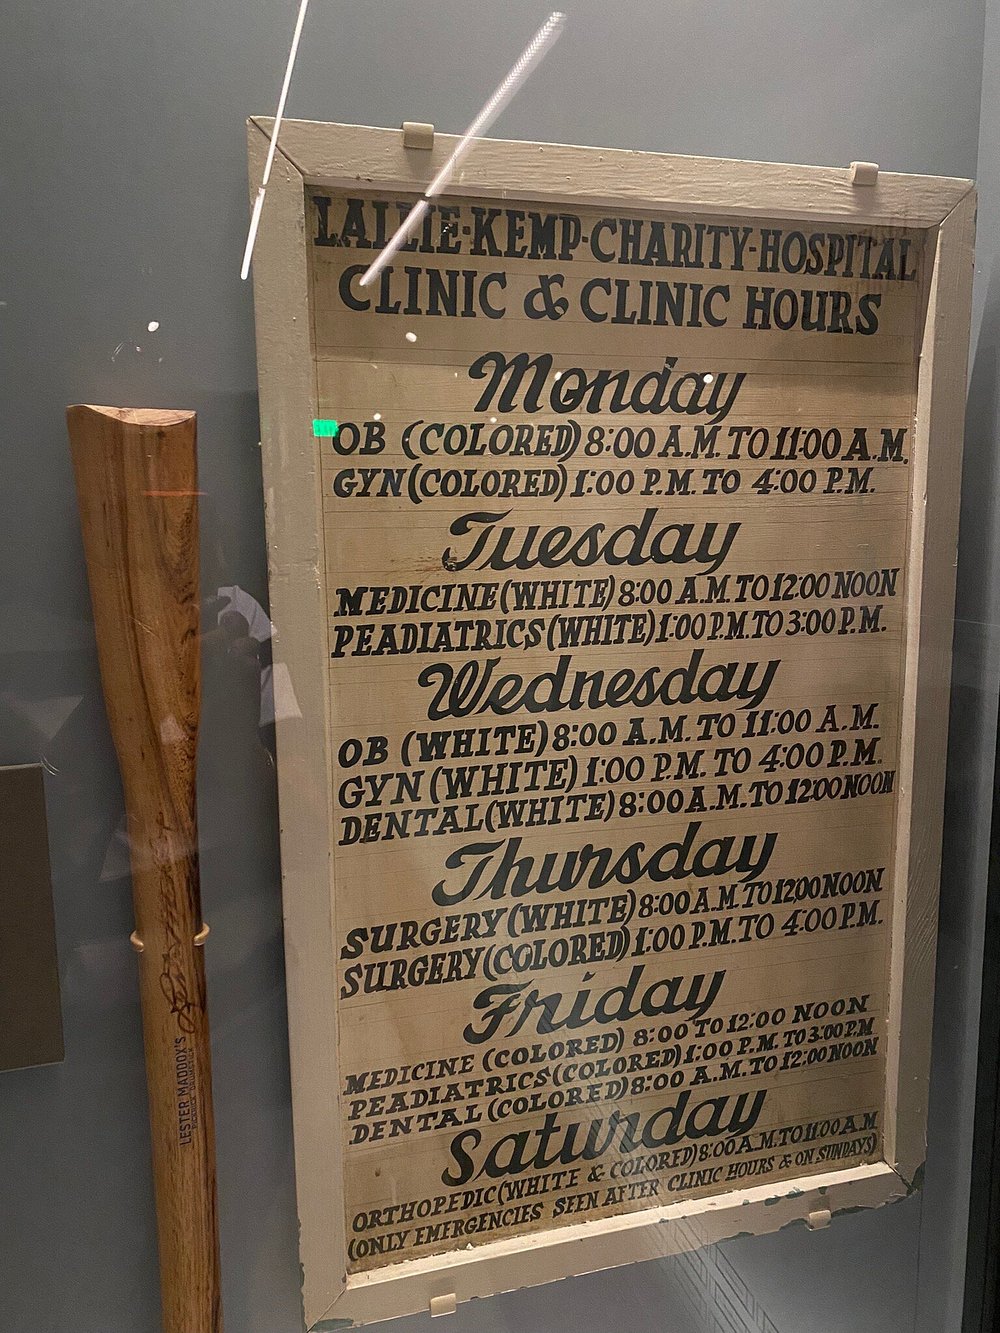 LALLIE-KEMP-CHARITY-HOSPITAL
CLINIC & CLINIC HOURS
Monday
OB (COLORED) 8:00 A.M. TO 11:00 A.M.
GYN (COLORED) 1:00 P.M. TO 4:00 P.M.
Tuesday
MEDICINE (WHITE) 8:00 A.M. TO 12:00 NOON
PEADIATRICS (WHITE) 1:00 P.M. TO 3:00 P.M.
Wednesday
OB (WHITE) 8:00 A.M. TO 11:00 A.M.
GYN (WHITE) 1:00 P.M. TO 4:00 P.M.
DENTAL (WHITE) 8:00 A.M. TO 12:00 NOON
Thursday
SURGERY (WHITE) 8:00 A.M. TO 12:00 NOON
SURGERY (COLORED) 1:00 P.M. TO 4:00 P.M.
Friday
MEDICINE (COLORED) 8:00 TO 12:00 NOON
PEADIATRICS (COLORED) 1:00 P.M. TO 3:00 P.M
DENTAL (COLORED) 8:00 A.M. TO 12:00 NOON
Saturday
ORTHOPEDIC (WHITE & COLORED) 8:00 A.M. TO 11:00 A.M
(ONLY EMERGENCIES SEEN AFTER CLINIC HOURS & ON SUNDAYS)
LESTER MADDOX'S
PICKRICK DRUMSTICK